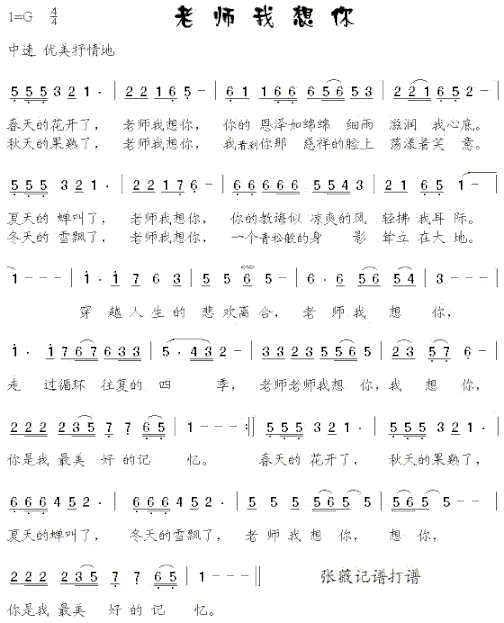 老师我想你
1=G 4/4
中速 优美抒情地
5 5 5 3 2 1 · | 2 2 1 6 5 – | 6 1 1 6 6 6 5 6 5 3 | 2 2 1 6 5 2 – |
春天的花开了， 老师我想你， 你的 恩泽如绵绵 细雨 滋润 我心底。
秋天的果熟了， 老师我想你， 我看到你那 慈祥的脸上 荡漾着笑 意。
5 5 5 3 2 1 · | 2 2 1 7 6 – | 6 6 6 6 6 5 5 4 3 | 2 2 1 6 5 1 – |
夏天的 蝉叫了， 老师我想你， 你的教诲似 凉爽的风 轻拂 我耳 际。
冬天的 雪飘了， 老师我想你， 一个青松般的身 影 耸立 在大 地。
1 – – – | 1 · 1 7 6 3 | 5 5 6 5 – | 6 · 6 5 5 6 5 4 |
穿 越人生的 悲欢离合， 老 师我 想 你，
1 · 1 7 6 7 6 3 3 | 5 · 4 3 2 – | 3 3 2 3 5 5 6 5 | 2 3 5 7 6 – |
走 过循环 往复的 四 季， 老师老师我想 你，我 想 你，
2 2 2 2 3 5 7 7 6 5 | 1 – – – :‖ 5 5 5 3 2 1 · | 5 5 5 3 2 1 · |
你是我 最美 好 的记 忆。 春天的 花开了， 秋天的果熟了，
6 6 6 4 5 2 · | 6 6 6 4 5 2 · | 5 5 5 5 6 5 | 5 5 5 – – |
夏天的蝉叫了， 冬天的雪飘了， 老 师 我 想 你， 想 你，
2 2 2 2 3 5 7 7 6 5 | 1 – – – ‖ 张薇记谱打谱
你是我 最美 好 的记 忆。